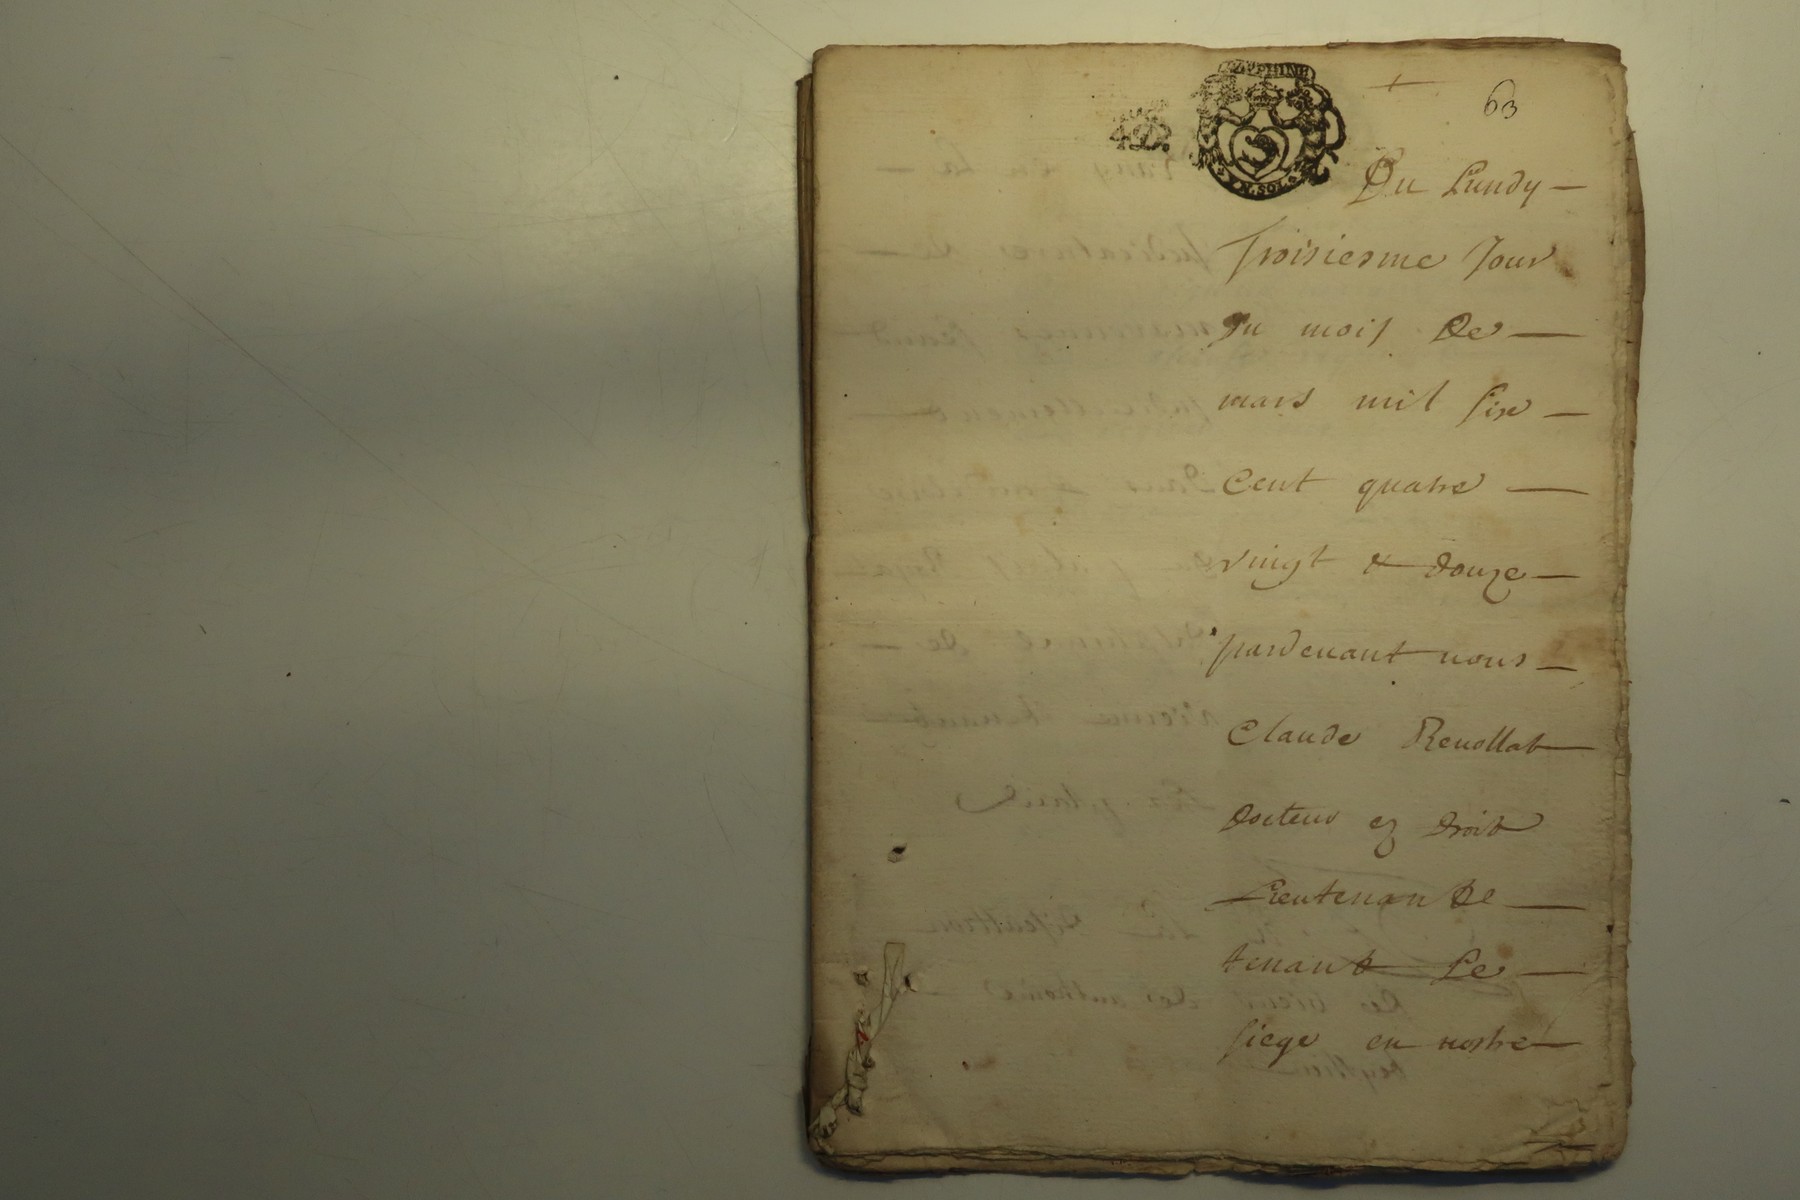 63
4.D.
VN.SOL.
Du Lundy
troisiesme Jour
du mois de
mars mil six
cent quatre
vingt & douze
pardeuant nous
Claude Reuollat
docteur ez droit
Lieutenant
tenant le
siege en nostre